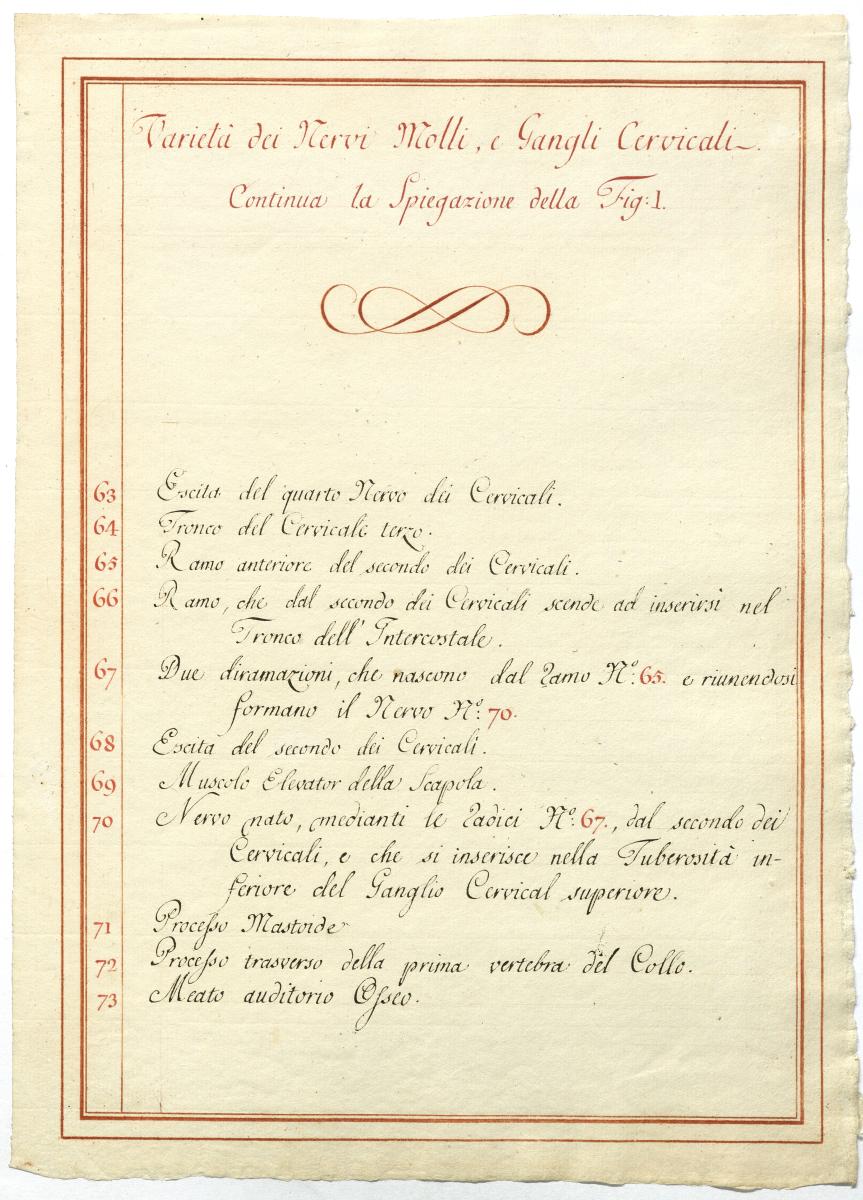 Varietà dei Nervi Molli, e Gangli Cervicali.
Continua la Spiegazione della Fig: 1.
63 Escita del quarto Nervo dei Cervicali.
64 Tronco del Cervicale terzo.
65 Ramo anteriore del secondo dei Cervicali.
66 Ramo, che dal secondo dei Cervicali scende ad inserirsi nel
Tronco dell'Intercostale.
67 Due diramazioni, che nascono dal Ramo Nº: 65. e riunendosi
formano il Nervo Nº: 70.
68 Escita del secondo dei Cervicali.
69 Muscolo Elevator della Scapola.
70 Nervo nato, medianti le Radici Nº: 67., dal secondo dei
Cervicali, e che si inserisce nella Tuberosità in-
feriore del Ganglio Cervical superiore.
71 Proceſso Mastoide
72 Proceſso trasverso della prima vertebra del Collo.
73 Meato auditorio Oſseo.